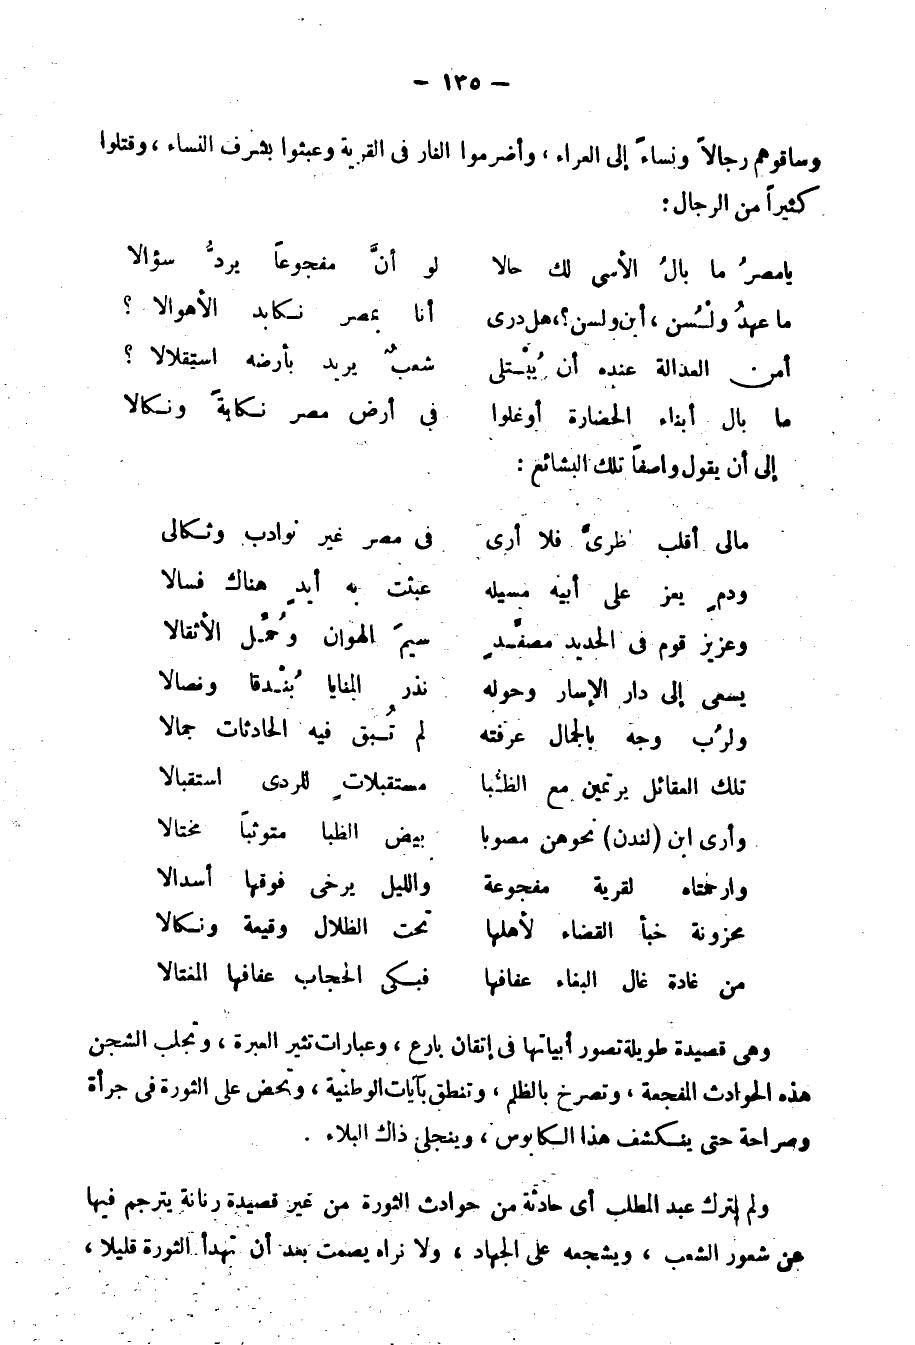 — ١٣٥ —
وساقوهم رجالاً ونساءً إلى العراء ، وأضرموا النار فى القرية وعبثوا بشرف النساء ، وقتلوا
كثيراً من الرجال :
يامصرُ ما بالُ الأسى لك حالا لو أنَّ مفجوعاً يردُّ سؤالا
ما عهدُ ولْسُن ، أين ولسن؟، هل درى أنا بمصر نكابد الأهوالا ؟
أمن العدالة عنده أن يُبْتلى شعبٌ يريد بأرضه استقلالا ؟
ما بال أبناء الحضارة أوغلوا فى أرض مصر نكايةً ونكالا
إلى أن يقول واصفاً تلك البشائع :
مالى أقلب ناظرىَّ فلا أرى فى مصر غير نوادب وثكالى
ودمٍ يعز على أبيه مسيله عبثت به أيدٍ هناك فسالا
وعزيز قوم فى الحديد مصفَّدٍ سيمَ الهوان وحُمِّل الأثقالا
يسعى إلى دار الإسار وحوله نذر المنايا بُنْدقا ونصالا
ولرُب وجه بالجمال عرفته لم تُبق فيه الحادثات جمالا
تلك العقائل يرتمين مع الظُّبا مستقبلاتٍ للردى استقبالا
وأرى ابن (لندن) نحوهن مصوبا بيض الظبا متوثباً مختالا
وارحمتاه لقرية مفجوعة والليل يرخى فوقها أسدالا
محزونة خبأ القضاء لأهلها تحت الظلال وقيعة ونكالا
من غادة غال البغاء عفافها فبكى الحجاب عفافها المغتالا
وهى قصيدة طويلة تصور أبياتها فى إتقان بارع ، وعبارات تثير العبرة ، وتجلب الشجن
هذه الحوادث المفجعة ، وتصرخ بالظلم ، وتنطق بآيات الوطنية ، وتحض على الثورة فى جرأة
وصراحة حتى ينكشف هذا الكابوس ، وينجلى ذاك البلاء .
ولم يترك عبد المطلب أى حادثة من حوادث الثورة من غير قصيدة رنانة يترجم فيها
عن شعور الشعب ، ويشجعه على الجهاد ، ولا نراه يصمت بعد أن تهدأ الثورة قليلا ،